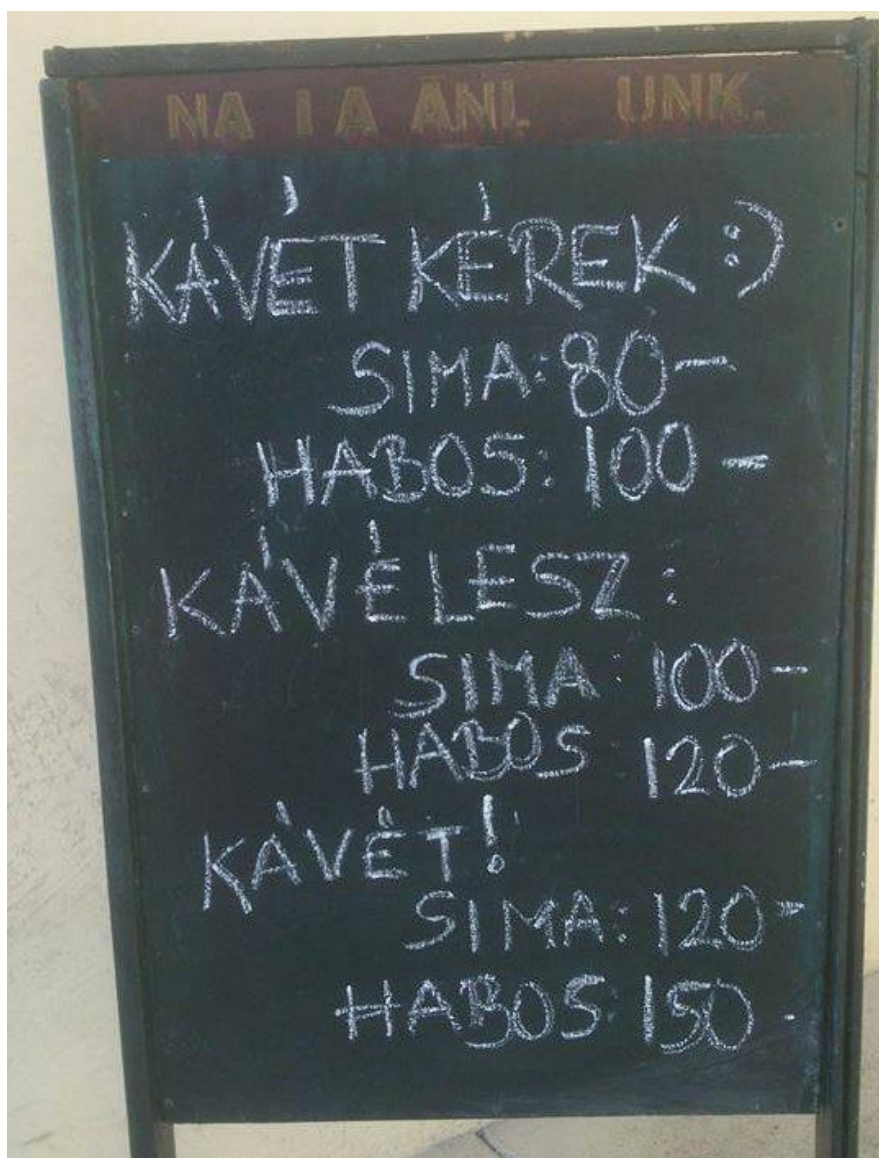 NA I A ÁNL UNK.
KÁVÉT KÉREK :)
SIMA: 80-
HABOS: 100-
KÁVÉ LESZ:
SIMA: 100-
HABOS 120-
KÁVÉT!
SIMA: 120-
HABOS: 150.